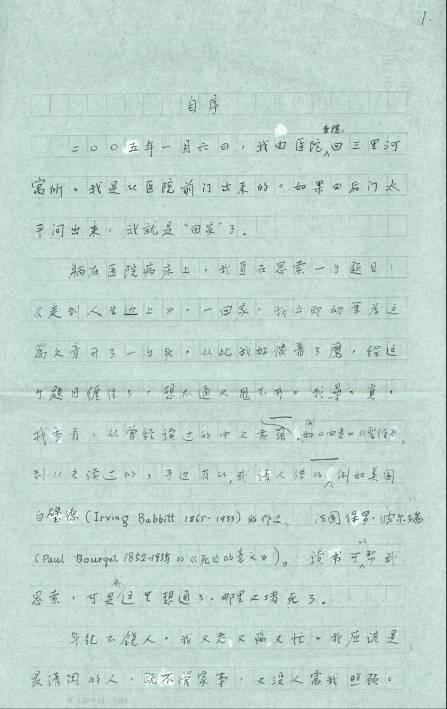 1.
自序
二〇〇五年一月六日，我由医院出院，回三里河
寓所。我是从医院前门出来的。如果由后门太
平间出来，我就是“回家”了。
躺在医院病床上，我直在思索一个题目：
《走到人生边上》。一回家，我立即动笔为这
篇文章开了一个头。从此我好像着了魔，给这
个题目缠住了，想不通又甩不开。我寻寻觅觅
找书看，从曾经读过的中文书籍 例如《四书》《圣经》，
到从未读过的，手边有的，或请人借的 例如美国
白璧德 (Irving Babbitt 1865-1933) 的作品， 法国保罗·波尔瑞
(Paul Bourget 1852-1935 的《死亡的意义》)。读书可以帮我
思索，可是这里想通了，那里又堵死了。
年纪不饶人。我又老又病又忙。我应该是
最清闲的人，既不管家事，又没人需我照顾。